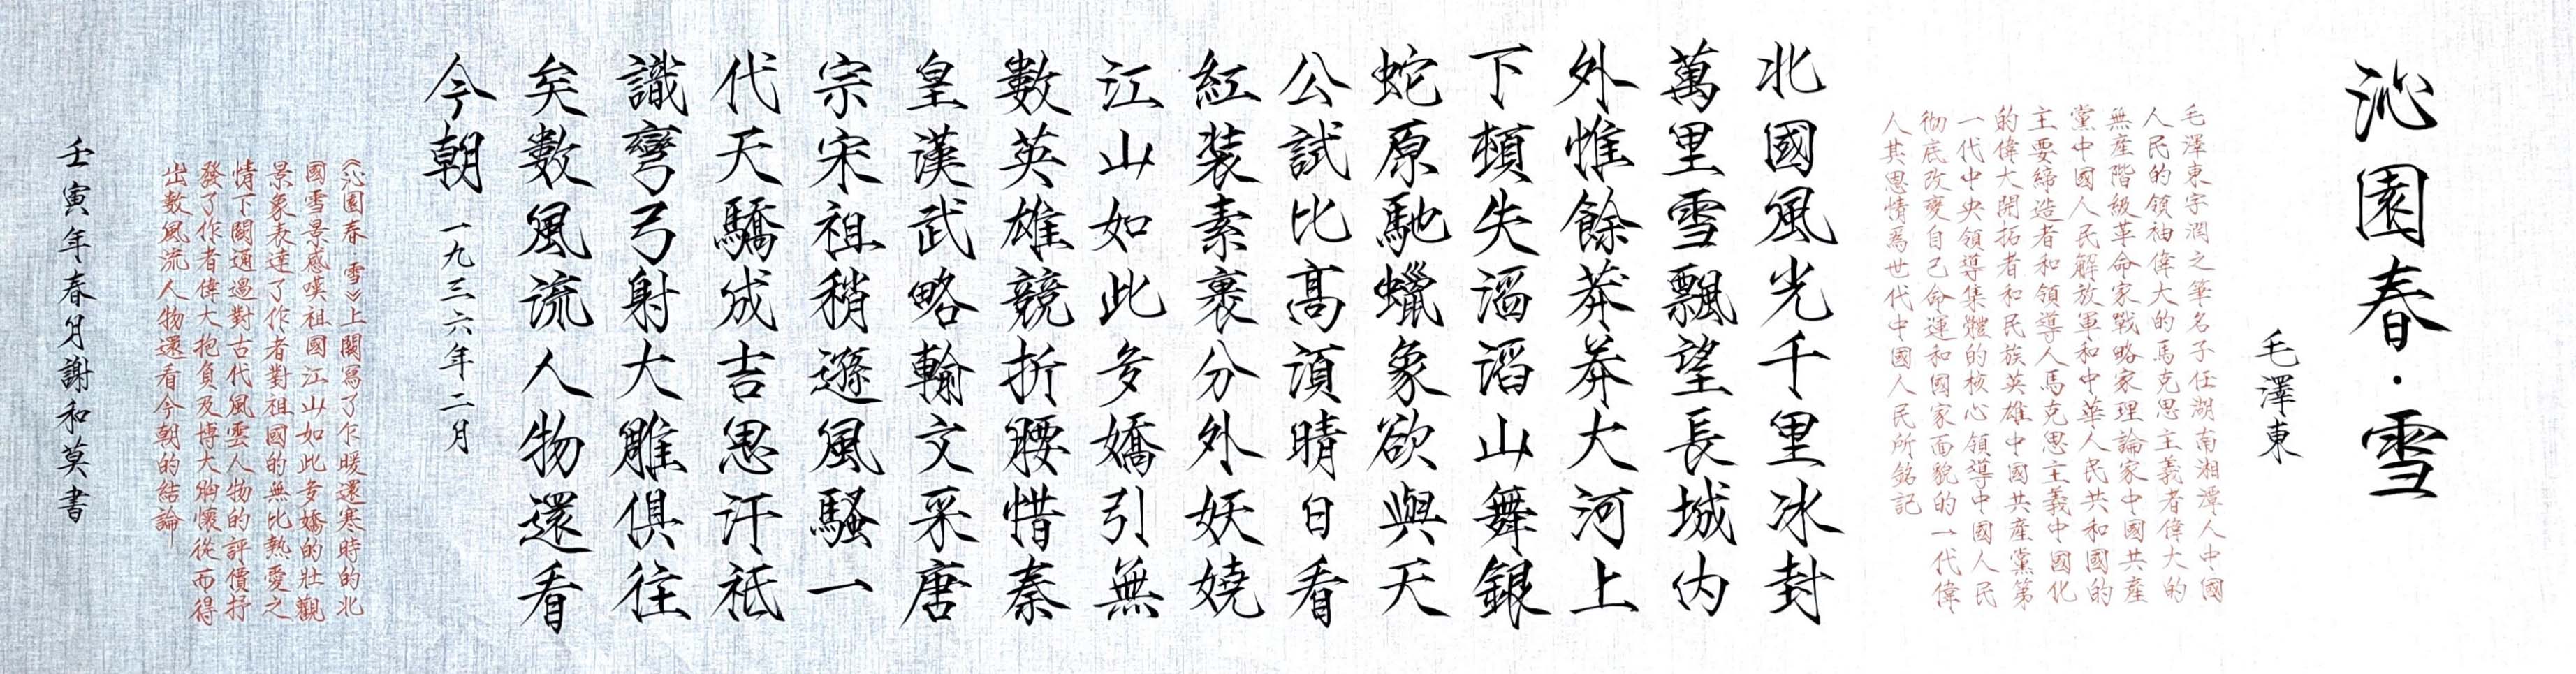 沁園春·雪
毛澤東
毛澤東字潤之筆名子任湖南湘潭人中國
人民的領袖偉大的馬克思主義者偉大的
無產階級革命家戰略家理論家中國共產
黨中國人民解放軍和中華人民共和國的
主要締造者和領導人馬克思主義中國化
的偉大開拓者和民族英雄中國共產黨第
一代中央領導集體的核心領導中國人民
彻底改變自己命運和國家面貌的一代偉
人其思情爲世代中國人民所銘記
北國風光千里冰封
萬里雪飄望長城内
外惟餘莽莽大河上
下頓失滔滔山舞銀
蛇原馳蠟象欲與天
公試比高須晴日看
紅装素裹分外妖嬈
江山如此多嬌引無
數英雄競折腰惜秦
皇漢武略輸文采唐
宗宋祖稍遜風騷一
代天驕成吉思汗祗
識彎弓射大雕俱往
矣數風流人物還看
今朝
一九三六年二月
《沁園春 雪》上闋寫了乍暖還寒時的北
國雪景感嘆祖國江山如此多嬌的壯觀
景象表達了作者對祖國的無比熱愛之
情下闋通過對古代風雲人物的評價抒
發了作者偉大抱負及博大胸懷從而得
出數風流人物還看今朝的結論
壬寅年春月謝和莫書